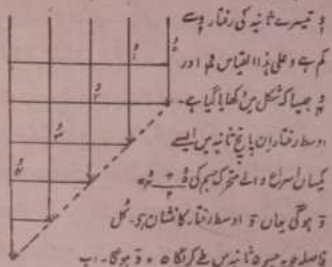 تیسرے ثانیہ کی رفتار
کم ہے وعلیٰ ہذا القیاس اور
جیسا کہ شکل میں دکھایا گیا ہے۔
اوسط رفتار ان پانچ ثانیہ میں ایسے
یکساں اسراع والے متحرک جسم کی
ہوگی یہاں اوسط رفتار کا نشان ہے۔ کل
فاصلہ جو جسم ۵ ثانیہ میں طے کرے گا ۵ ہوگا۔ اب